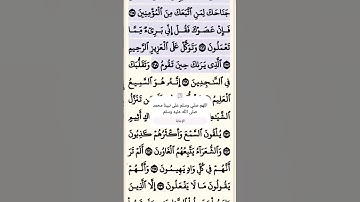 جَنَاحَكَ لِمَنِ ٱتَّبَعَكَ مِنَ ٱلْمُؤْمِنِينَ
فَإِنْ عَصَوْكَ فَقُلْ إِنِّي بَرِيٓءٌ مِّمَّا
تَعْمَلُونَ وَتَوَكَّلْ عَلَى ٱلْعَزِيزِ ٱلرَّحِيمِ
ٱلَّذِي يَرَىٰكَ حِينَ تَقُومُ وَتَقَلُّبَكَ
فِي ٱلسَّٰجِدِينَ إِنَّهُۥ هُوَ ٱلسَّمِيعُ
ٱلْعَلِيمُ تَنَزَّلُ
اللهم صلي وسلم على نبينا محمد
صلى الله عليه وسلم
أَثِيمٍ
يُلْقُونَ ٱلسَّمْعَ وَأَكْثَرُهُمْ كَٰذِبُونَ
وَٱلشُّعَرَآءُ يَتَّبِعُهُمُ ٱلْغَاوُۥنَ أَلَمْ تَرَ
أَنَّهُمْ فِي كُلِّ وَادٍ يَهِيمُونَ وَأَنَّهُمْ
يَقُولُونَ مَا لَا يَفْعَلُونَ إِلَّا ٱلَّذِينَ